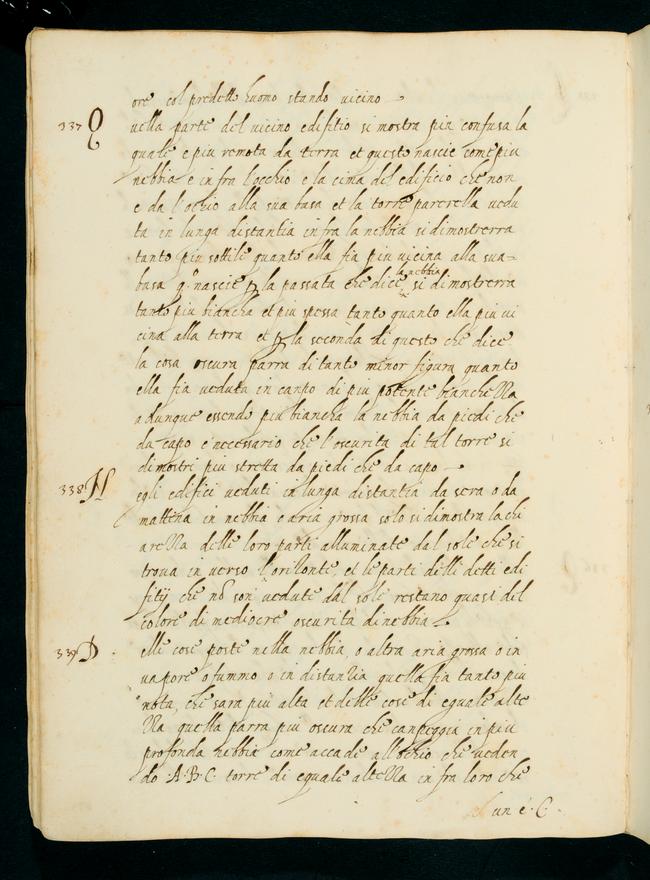 ore col predetto huomo stando uicino
337 Q uella parte del uicino edifitio si mostra piu confusa la
quale e piu remota da terra et questo nascie come piu
nebbia e in fra l'occhio e la cima del edificio che non
e da l'ochio alla sua basa et la torre parerella uedu
ta in lunga distantia in fra la nebbia si dimostrerra
tanto piu sottile quanto ella fia piu uicina alla sua
basa qº nascie p la passata che dice la nebbia si dimosterra
tanto piu biancha et piu spessa tanto quanto ella piu ui
cina alla terra et p la seconda di questo che dice
la cosa oscura parra di tanto minor figura quanto
ella fia ueduta in canpo di piu potente biancheza
adunque essendo piu biancha la nebbia da piedi che
da capo e necessario che l'oscurita di tal torre si
dimostri piu stretta da piedi che da capo
338 N egli edifici ueduti in lunga distantia da sera o da
mattina in nebbia e aria grossa solo si dimostra la chi
areza delle loro parti alluminate dal sole che si
troua in uerso l'orizonte, et le parti delli detti edi
fitij che nõ son uedute dal sole restano quasi del
colore di mediocre oscurita di nebbia
339 D elle cose poste nella nebbia, o altra aria grossa o in
uapore o fummo o in distanzia quella fia tanto piu
nota, che sara piu alta et delle cose di equale alte
za quella parra piu oscura che canpeggia in piu
profonda nebbia come accade all'ochio che ueden
do .A.B.C. torre di equale alteza in fra loro che
un é .C.